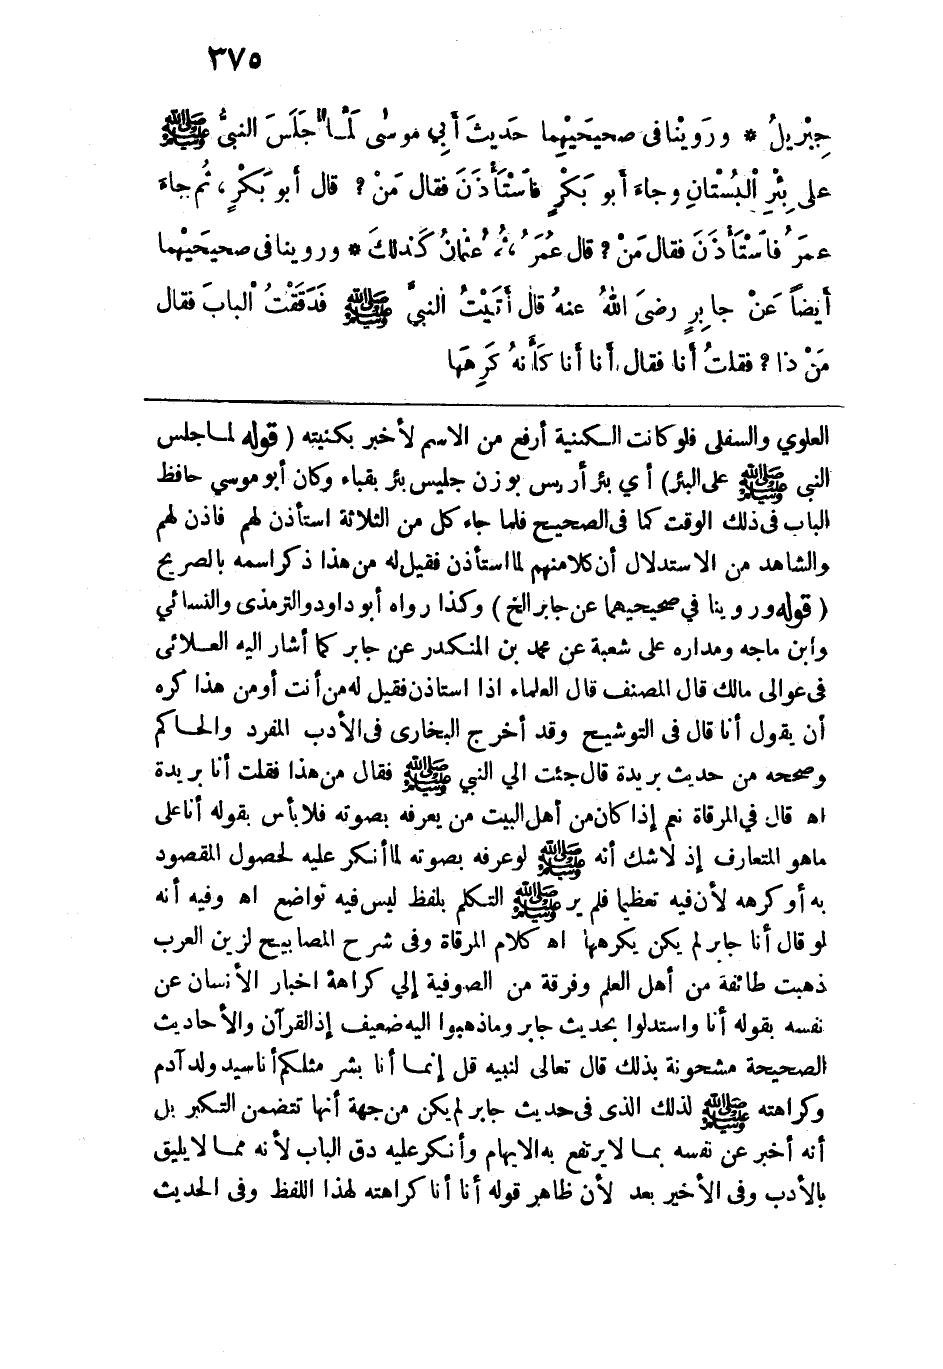 ٣٧٥
جِبْرِيلُ * ورَوَيْنا فى صحيحَيْهِما حَديثَ أَبِي موسٰى لَمَّا جَلَسَ النبىُّ ﷺ
على بِئْرِ الْبُسْتانِ وجاءَ أَبو بَكْرٍ فاسْتَأْذَنَ فقال مَنْ ؟ قال أبو بَكْرٍ ، ثُم جاءَ
عمرُ فاسْتَأْذَنَ فقال مَنْ ؟ قال عُمَرُ ، ثُمَّ عُثْمانُ كَذلكَ * وروينا فى صحيحَيْهما
أَيضاً عَنْ جابِرٍ رضىَ اللهُ عنهُ قال أَتَيْتُ النبىَّ ﷺ فَدَقَقْتُ البابَ فقال
مَنْ ذا ؟ فقلتُ أَنا فقال أَنا أَنا كَأَنهُ كَرِهَها
العلوي والسفلى فلو كانت الكنية أرفع من الاسم لأخبر بكنيته ( قوله لما جلس
النبى ﷺ على البئر) أي بئر أريس بوزن جليس بئر بقباء وكان أبو موسي حافظ
الباب فى ذلك الوقت كما فى الصحيح فلما جاء كل من الثلاثة استأذن لهم فاذن لهم
والشاهد من الاستدلال أن كلا منهم لما استأذن فقيل له من هذا ذكر اسمه بالصريح
( قوله وروينا في صحيحيهما عن جابر الخ ) وكذا رواه أبو داود والترمذى والنسائي
وابن ماجه ومداره على شعبة عن محمد بن المنكدر عن جابر كما أشار اليه العلائى
فى عوالى مالك قال المصنف قال العلماء اذا استاذن فقيل له من أنت أو من هذا كره
أن يقول أنا قال فى التوشيح وقد أخرج البخارى فى الأدب المفرد والحاكم
وصححه من حديث بريدة قال جئت الي النبي ﷺ فقال من هذا فقلت أنا بريدة
اه قال في المرقاة نعم إذا كان من أهل البيت من يعرفه بصوته فلا بأس بقوله أنا على
ما هو المتعارف إذ لا شك أنه ﷺ لو عرفه بصوته لما أنكر عليه لحصول المقصود
به أو كرهه لأن فيه تعظيما فلم ير ﷺ التكلم بلفظ ليس فيه تواضع اه وفيه أنه
لو قال أنا جابر لم يكن يكرهها اه كلام المرقاة وفى شرح المصابيح لزين العرب
ذهبت طائفة من أهل العلم وفرقة من الصوفية إلي كراهة اخبار الأنسان عن
نفسه بقوله أنا واستدلوا بحديث جابر وما ذهبوا اليه ضعيف إذ القرآن والأحاديث
الصحيحة مشحونة بذلك قال تعالى لنبيه قل إنما أنا بشر مثلكم أنا سيد ولد آدم
وكراهته ﷺ لذلك الذى فى حديث جابر لم يكن من جهة أنها تتضمن التكبر بل
أنه أخبر عن نفسه بما لا يرتفع به الابهام وأنكر عليه دق الباب لأنه مما لا يليق
بالأدب وفى الأخير بعد لأن ظاهر قوله أنا أنا كراهته لهذا اللفظ وفى الحديث